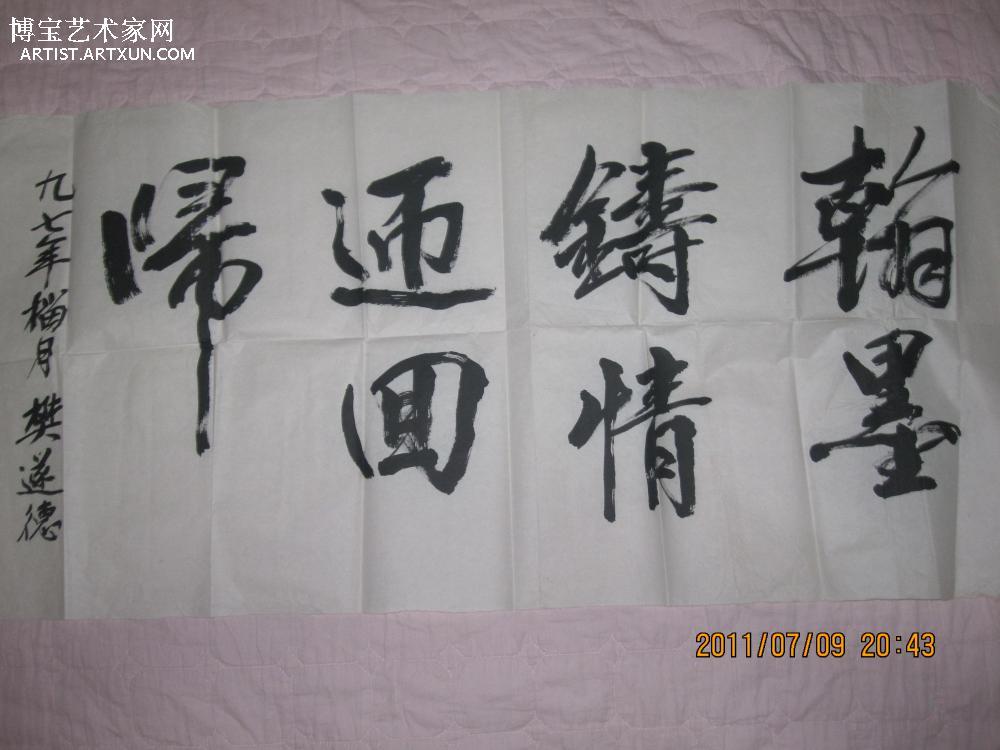 博宝艺术家网
ARTIST.ARTXUN.COM
翰墨
鑄情
迊回
歸
九七年榴月 樊遂德
2011/07/09 20:43